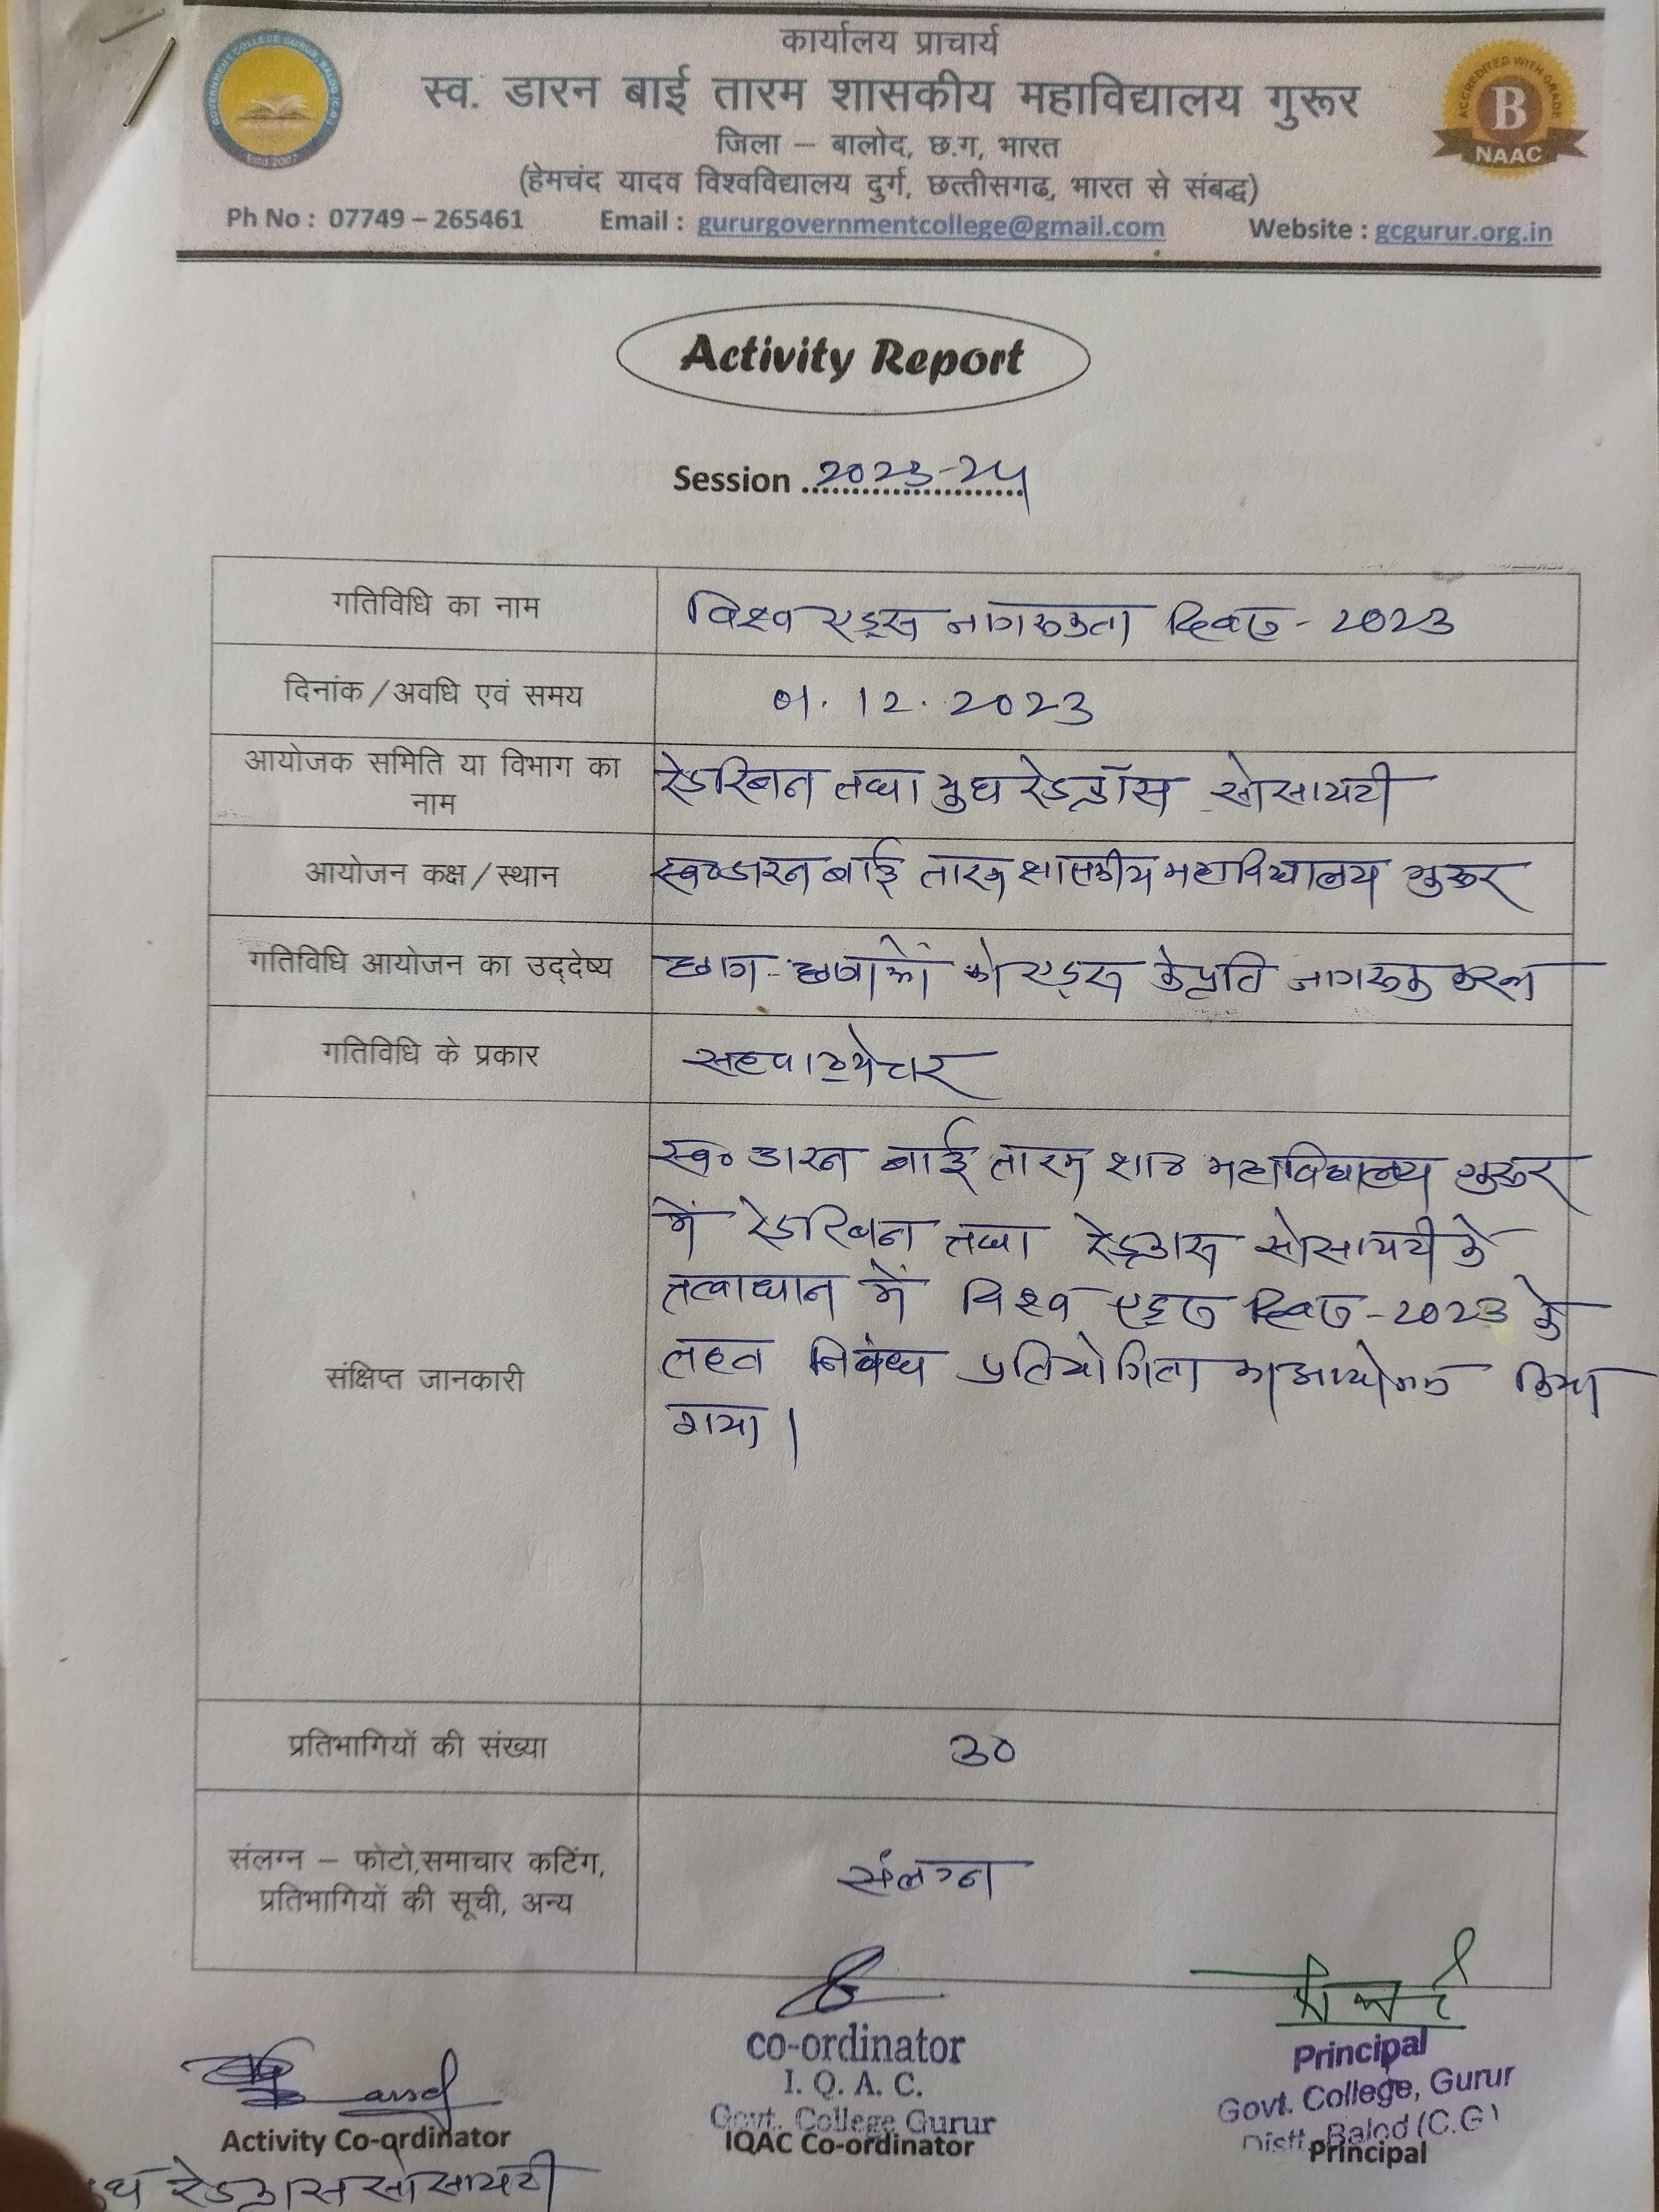 कार्यालय प्राचार्य
स्व. डारन बाई तारम शासकीय महाविद्यालय गुरूर
जिला – बालोद, छ.ग, भारत
(हेमचंद यादव विश्वविद्यालय दुर्ग, छत्तीसगढ, भारत से संबद्ध)
Ph No : 07749 – 265461 Email : gururgovernmentcollege@gmail.com Website : gcgurur.org.in
GOVERNMENT COLLEGE GURUR, BALOD (C.G.)
Estd 2007
ACCREDITED WITH GRADE
B
NAAC
Activity Report
Session 2023-24
गतिविधि का नाम विश्व एड्स जागरूकता दिवस - 2023
दिनांक/अवधि एवं समय 01.12.2023
आयोजक समिति या विभाग का
नाम
रेडरिबन तथा युथ रेडक्रॉस सोसायटी
आयोजन कक्ष/स्थान स्व० डारन बाई तारम शासकीय महाविद्यालय गुरूर
गतिविधि आयोजन का उद्देष्य छात्र-छात्राओं को एड्स के प्रति जागरूक करना
गतिविधि के प्रकार सहपाठ्येत्तर
संक्षिप्त जानकारी
स्व० डारन बाई तारम शास० महाविद्यालय गुरूर
में रेडरिबन तथा रेडक्रास सोसायटी के
तत्वाधान में विश्व एड्स दिवस-2023 के
तहत निबंध प्रतियोगिता का आयोजन किया
गया।
प्रतिभागियों की संख्या 30
संलग्न – फोटो,समाचार कटिंग,
प्रतिभागियों की सूची, अन्य
संलग्न
co-ordinator
I. Q. A. C.
Govt. College Gurur
IQAC Co-ordinator
Principal
Govt. College, Gurur
Distt. Balod (C.G)
Principal
Activity Co-ordinator
रेडक्रास सोसायटी